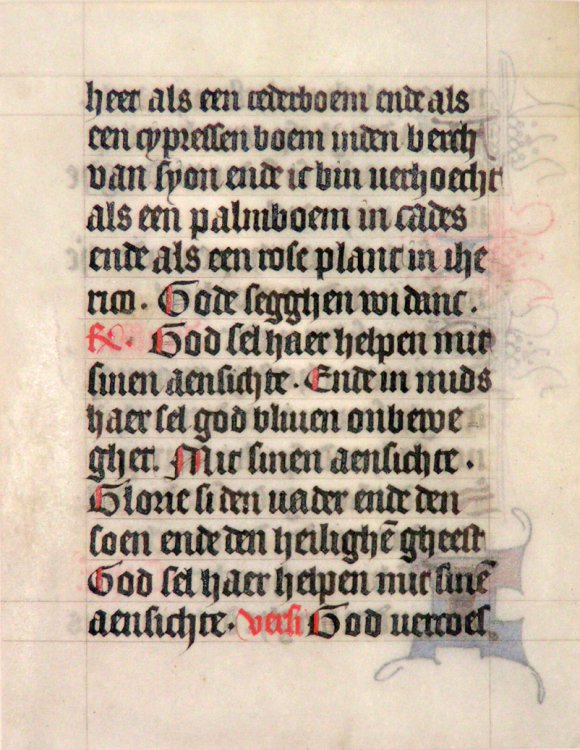 heet als een cederboem ende als
een cypressen boem inden berch
van syon ende ic bin uerhoecht
als een palmboem in cades
ende als een rose plant in ihe
rico. Gode segghen wi danc.
R. God sel haer helpen mit
sinen aensichte. Ende in mids
haer sel god bliuen onbewe
ghet. Mit sinen aensichte.
Glorie si den uader ende den
soen ende den heilighē gheest
God sel haer helpen mit sinē
aensichte. versi God uercoes